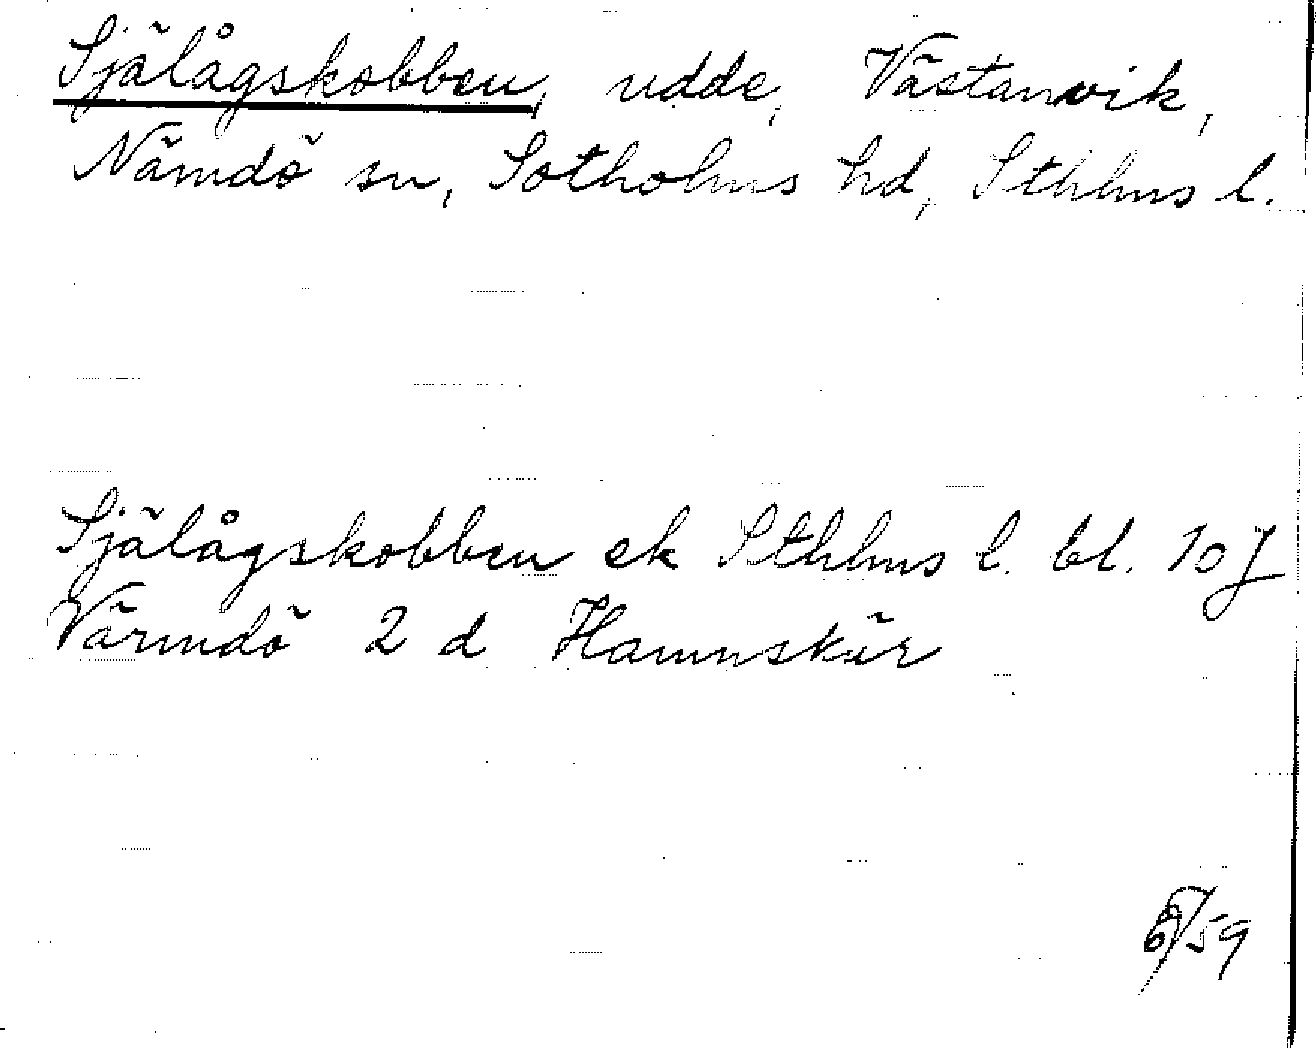 Själågskobben, udde, Västanvik,
Nämdö sn, Sotholms hd, Sthlms l.
Själågskobben ek Sthlms l. bl. 10J
Värmdö 2 d Hamnskär
/59